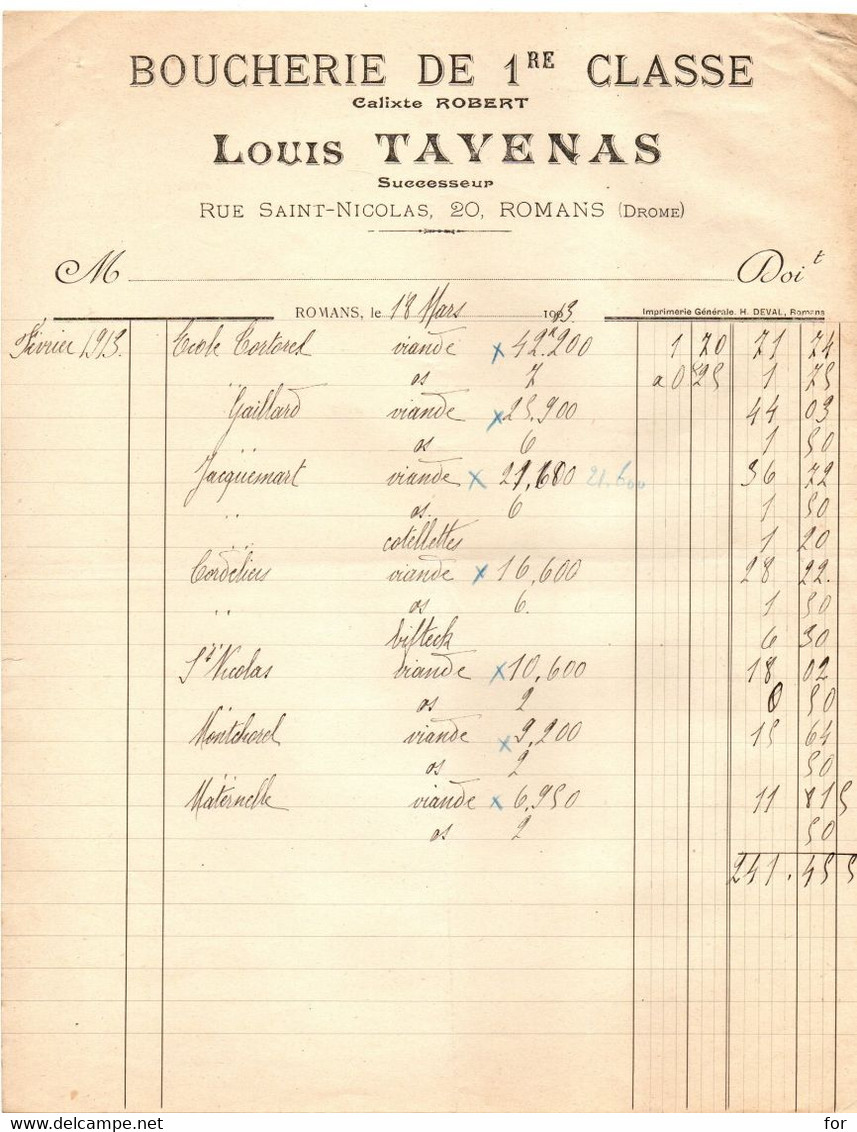 BOUCHERIE DE 1RE CLASSE
Calixte ROBERT
Louis TAVENAS
Successeur
RUE SAINT-NICOLAS, 20, ROMANS (DROME)
M Doit
ROMANS, le 18 Mars 1913
Imprimerie Générale. H. DEVAL, Romans
Février 1913. Ecole viande x 42k200 1 70 71 74
os 7 a 0 25 1 75
Gaillard viande x 25,900 44 03
os 6 1 50
Jacquemart viande x 21,600 21.600 36 72
" os. 6 1 50
" cotellettes 1 20
Cordeliers viande x 16,600 28 22.
" os 6. 1 50
" bifteck 6 30
St Nicolas viande x 10,600 18 02
" os 2 0 50
Montchorel viande x 9,200 15 64
" os 2 50
Maternelle viande x 6,950 11 815
os 2 50
241.455
for